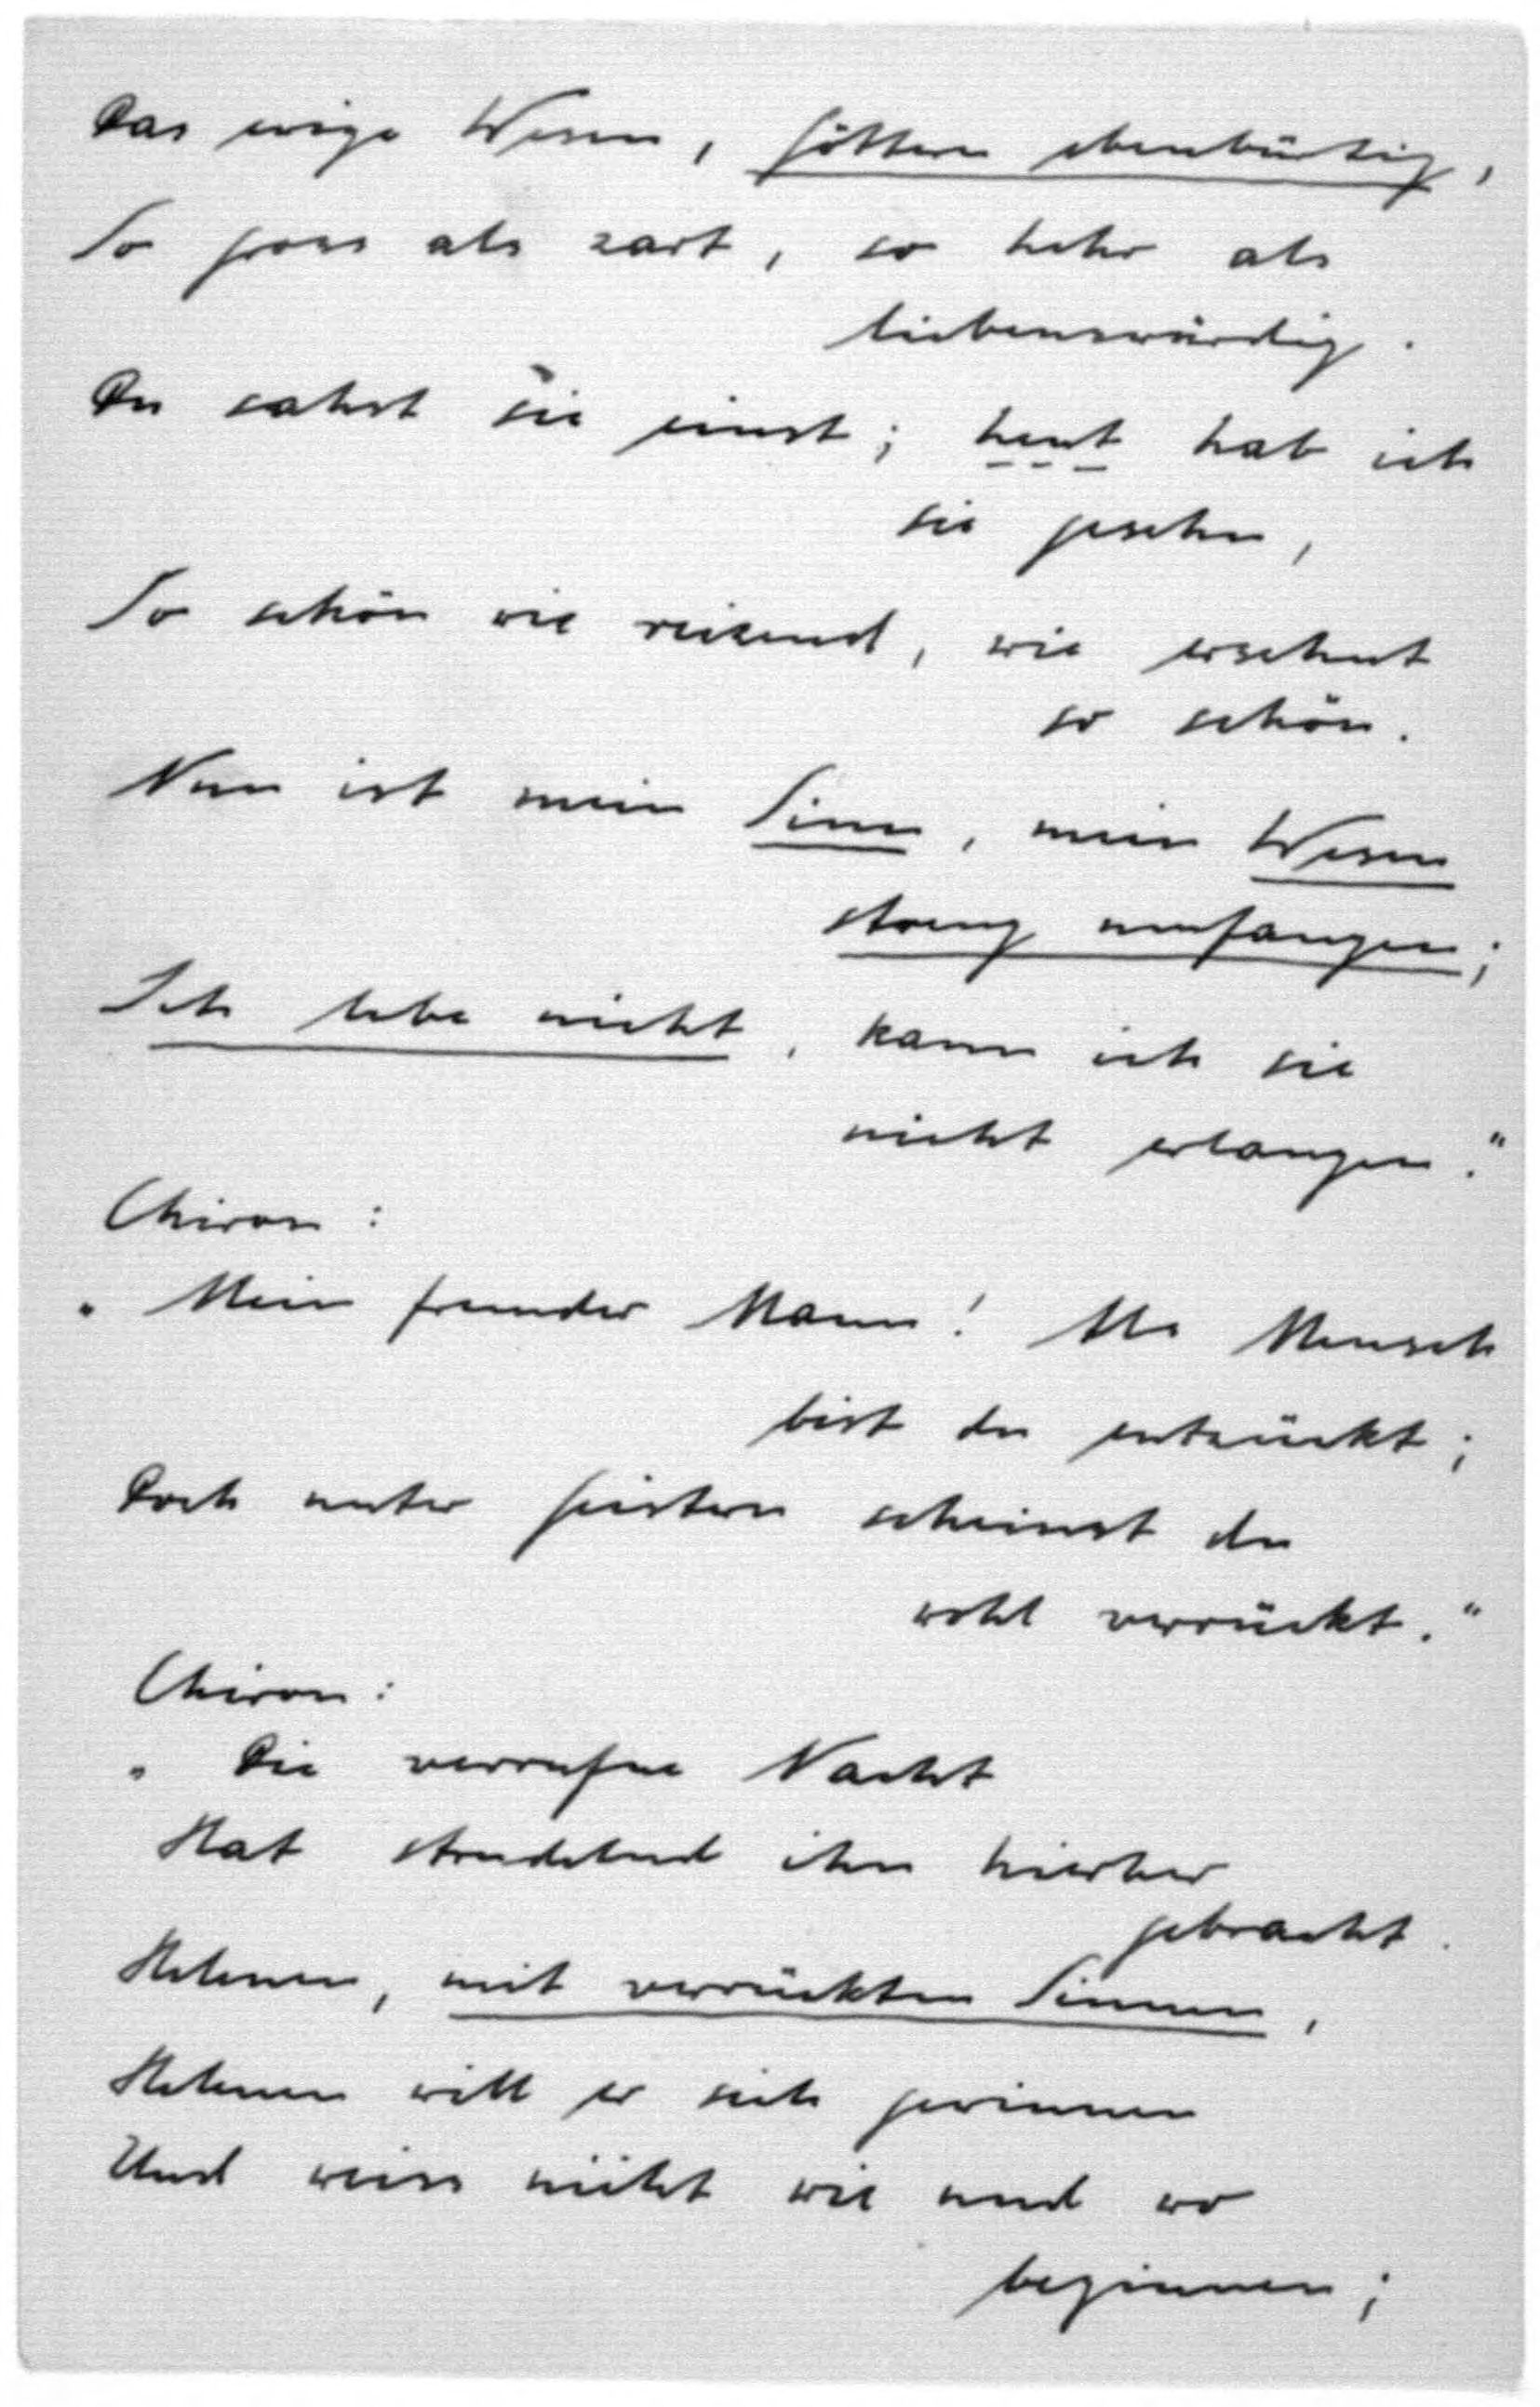 Das ewige Wesen, Göttern ebenbürtig,
So gross als zart, so hehr als
liebenswürdig.
Du sahst sie einst; heut hab ich
sie gesehn,
So schön wie reizend, wie ersehnt
so schön.
Nun ist mein Sinn, mein Wesen
streng umfangen;
Ich lebe nicht, kann ich sie
nicht erlangen."
Chiron:
" Mein fremder Mann! Als Mensch
bist du entzückt;
Doch unter Geistern scheinst du
wohl verrückt."
Chiron:
" Die verrufne Nacht
Hat strudelnd ihn hierher
gebracht.
Helenen, mit verrückten Sinnen,
Helenen will er sich gewinnen
Und weiss nicht wie und wo
beginnen;